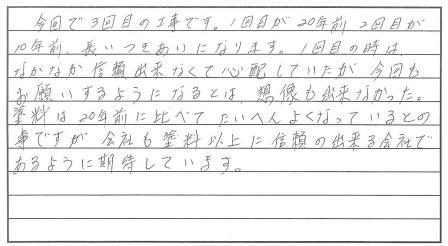 今回で3回目の工事です。1回目が20年前 2回目が
10年前、長いつきあいになります。1回目の時は
なかなか信頼出来なくて心配していたが 今回も
お願いするようになるとは、想像も出来なかった。
塗料は20年前に比べて たいへんよくなっているとの
事ですが 会社も塗料以上に信頼の出来る会社で
あるように期待しています。